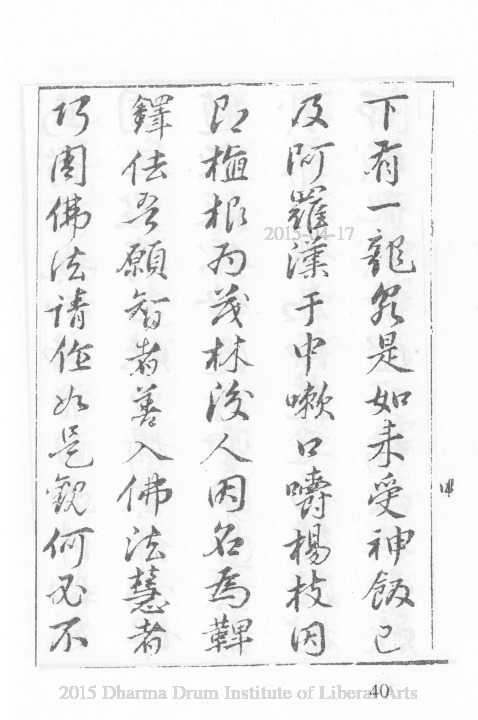 下有一龍泉是如来受神飯已
及阿羅漢于中嗽口嚼楊枝因
即植根为茂林後人因名為鞞
鐸佉吾願智者善入佛法慧者
巧因佛法請作如是觀何必不
40
2015-04-17
2015 Dharma Drum Institute of Liberal Arts